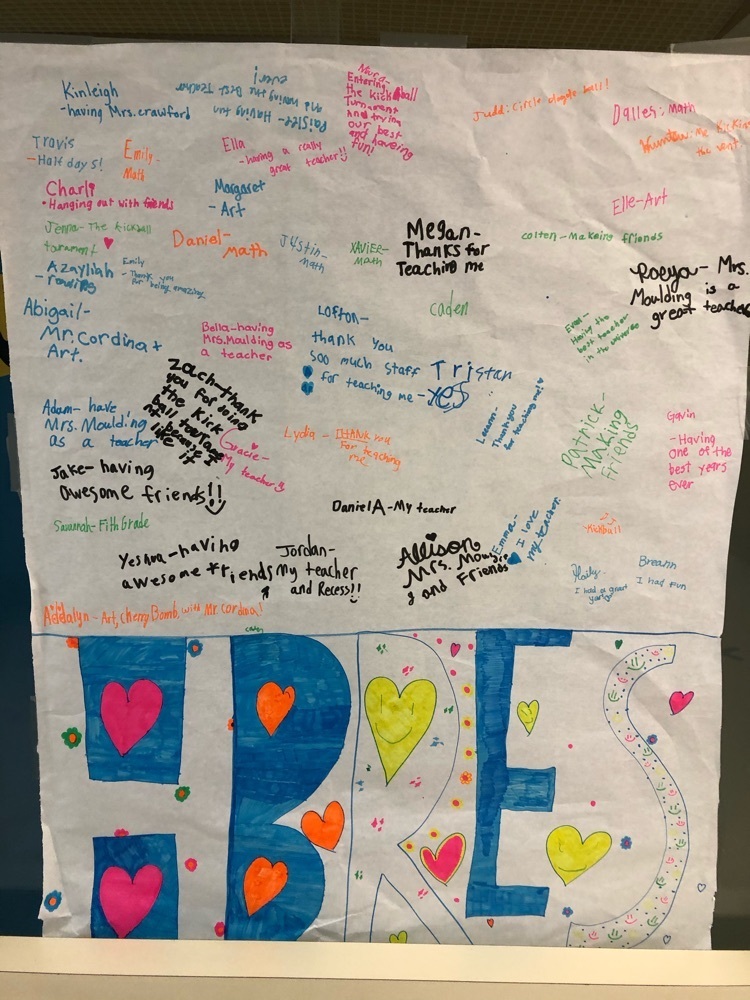 Kinleigh
-having Mrs.crawford
Paislee- Having fun
and having the Best Teacher
ever!
Mura-
Entering
the kickball
Turnament
And trying
our best
and haveing
fun!
Judd: Circle ball!
Daller: Math
Travis
- Half day 5!
Emily-
Math
Ella
- having a really
great teacher!!
Charli
• Hanging out with friends
Margaret
- Art
Elle-Art
Jenna- The kickball
Daniel-
Math
Justin-
math
XAViER-
MATH
Megan-
Thanks for
Teaching me
colten - Makeing friends
Azayliah
Emily
- Thank you
for being amazing
Roeya- Mrs.
Moulding is a
great teacher
Abigail-
Mr.Cordina +
Art.
Bella-having
Mrs.Moulding as
a teacher
Lofton-
thank you
soo much staff
for teaching me -
caden
the
best teacher
in the universe
Tristan
YES
Zach-thank
you for doing
the kick
ball
because I
like it
Adam- have
Mrs. Moulding
as a teacher
Gracie-
My teacher!!
Lydia - thank you
for teaching
me
Thank you
for teaching me!
Patrick-
Making
Friends
Gavin
-Having
one of the
best years
ever
Jake- having
awesome friends!!
DanielA-My teacher
Savannah- Fith Grade
Emma-
I love
my teacher.
Kickball
Yeshua-having
awesome friends
Jordan-
My teacher
and Recess!!
Allison
Mrs.
and Friends
I had a great
year
Breann
I had fun
Addalyn - Art, cherry Bomb, with Mr. cordina!
caden
HBRES